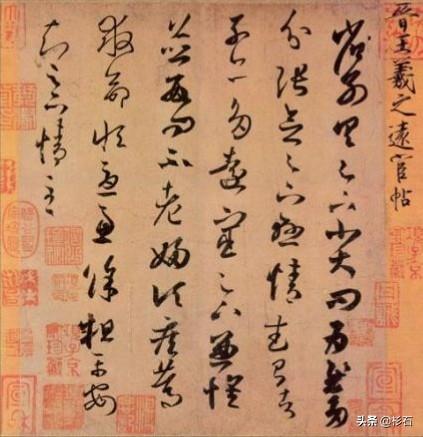 晉王羲之遠宦帖
省別具足下小大問為慰多
分張念足下懸情武昌諸
子亦多遠宦足下兼懷
並數問不老婦頃疾篤
救命恆憂慮餘粗平安
知足下情至
头条 @杉石